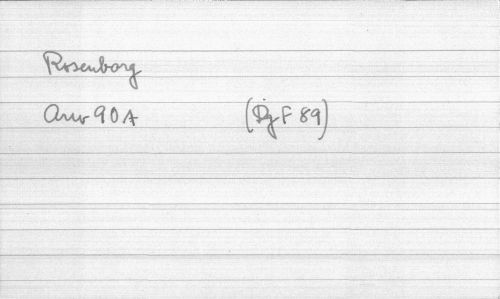 Rosenborg
Anv 90A (Dg F 89)